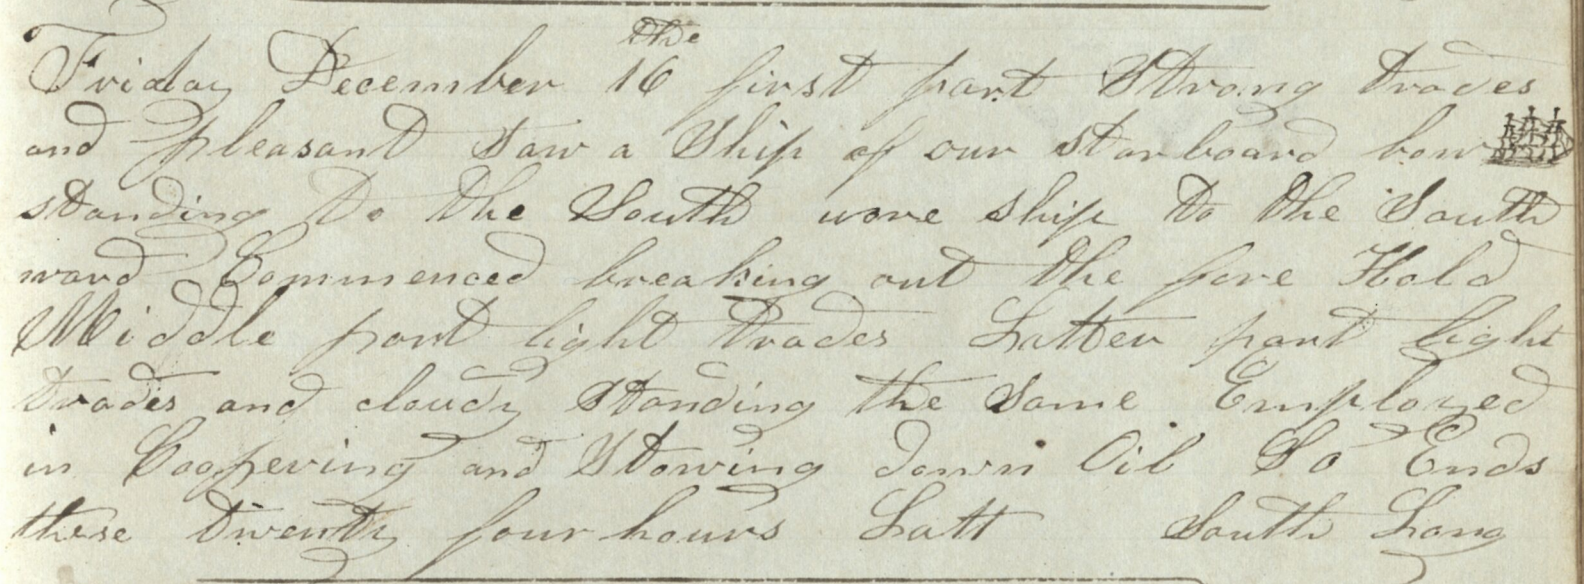 Friday December 16 the first part Strong trades
and pleasant Saw a Ship of our starboard bow
standing to the South wore ship to the South
ward Commenced breaking out the fore Hold
Middle part light trades Latter part light
trades and cloudy Standing the Same Employed
in Coopering and Stowing down Oil So Ends
these twenty four hours Latt South Long